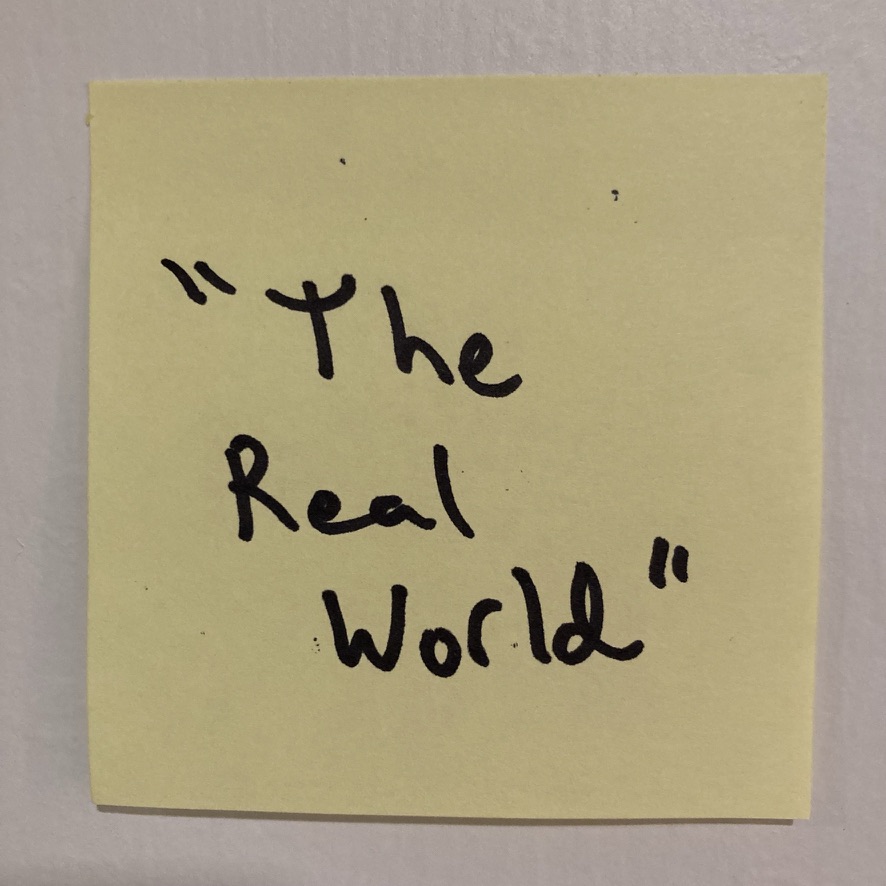 "The
Real
World"